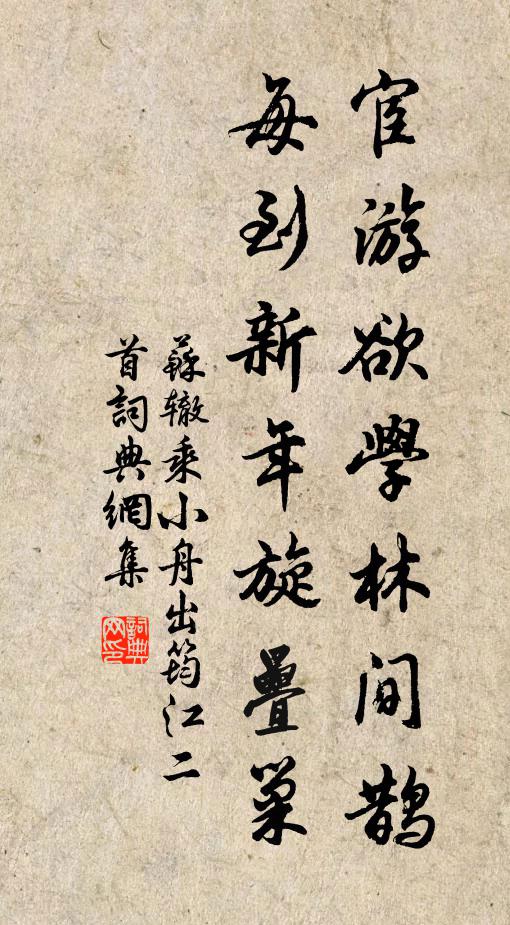 宦游欲學林間鵲
每到新年旋疊巢
蘇辙乘小舟出筠江二
首詞典網集
詞典
网印